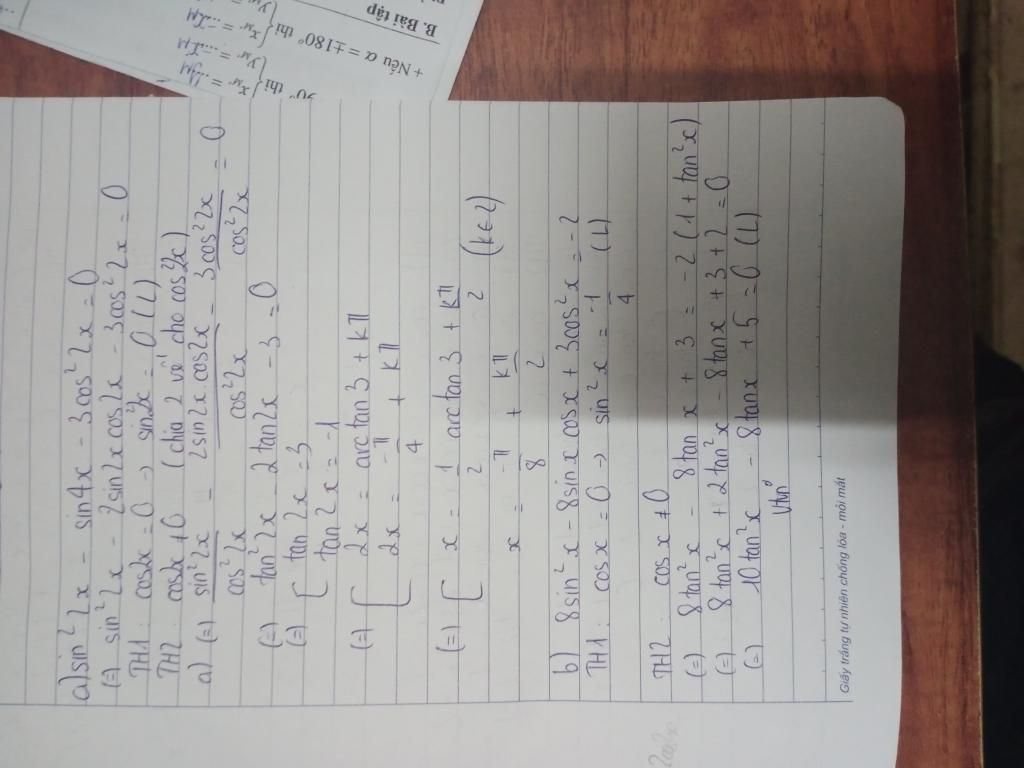 + Nếu α = ±180° thì
B. Bài tập
a) sin²2x - sin4x - 3cos²2x = 0
(=) sin²2x - 2sin2x cos2x - 3cos²2x = 0
TH1: cos2x = 0 → sin²2x = 0 (L)
TH2: cos2x ≠ 0 (chia 2 vế cho cos²2x)
a) (=) sin²2x/cos²2x - 2sin2x cos2x/cos²2x - 3cos²2x/cos²2x = 0
(=) tan²2x - 2tan2x - 3 = 0
(=) [ tan2x = 3
tan2x = -1
(=) [ 2x = arctan3 + kπ
2x = -π/4 + kπ
(=) [ x = 1/2 arctan3 + kπ/2
x = -π/8 + kπ/2 (k∈Z)
b) 8sin²x - 8sinx cosx + 3cos²x = -2
TH1: cosx = 0 → sin²x = -1/4 (L)
TH2 cosx ≠ 0
(=) 8tan²x - 8tanx + 3 = -2(1 + tan²x)
(=) 8tan²x + 2tan²x - 8tanx + 3 + 2 = 0
(=) 10tan²x - 8tanx + 5 = 0 (L)
Vtn⁰
Giấy trắng tự nhiên chống lóa - mỏi mắt